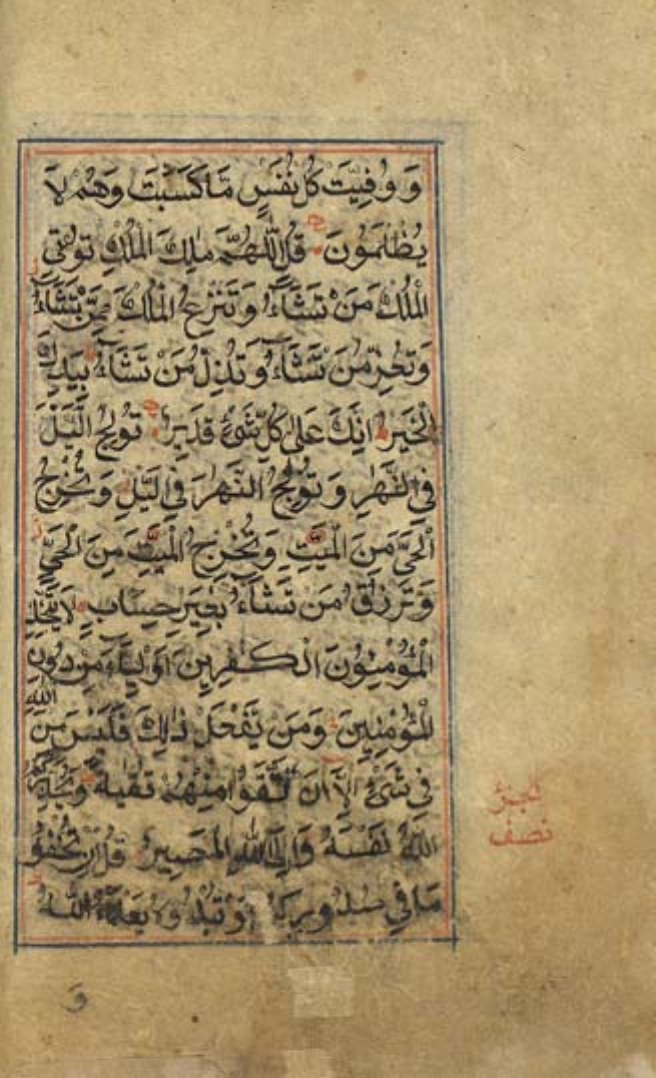 وَوُفِّيَتْ كُلُّ نَفْسٍ مَّا كَسَبَتْ وَهُمْ لَا
يُظْلَمُونَ قُلِ اللّٰهُمَّ مٰلِكَ الْمُلْكِ تُؤْتِي
الْمُلْكَ مَنْ تَشَآءُ وَتَنْزِعُ الْمُلْكَ مِمَّنْ تَشَآءُ
وَتُعِزُّ مَنْ تَشَآءُ وَتُذِلُّ مَنْ تَشَآءُ بِيَدِكَ
الْخَيْرُ اِنَّكَ عَلٰى كُلِّ شَيْءٍ قَدِيرٌ تُولِجُ الَّيْلَ
فِي النَّهَارِ وَتُولِجُ النَّهَارَ فِي الَّيْلِ وَتُخْرِجُ
الْحَيَّ مِنَ الْمَيِّتِ وَتُخْرِجُ الْمَيِّتَ مِنَ الْحَيِّ
وَتَرْزُقُ مَنْ تَشَآءُ بِغَيْرِ حِسَابٍ لَا يَتَّخِذِ
الْمُؤْمِنُونَ الْكٰفِرِينَ اَوْلِيَآءَ مِنْ دُونِ
الْمُؤْمِنِينَ وَمَنْ يَّفْعَلْ ذٰلِكَ فَلَيْسَ مِنَ اللّٰهِ
فِي شَيْءٍ اِلَّآ اَنْ تَتَّقُوا مِنْهُمْ تُقٰىةً وَيُحَذِّرُكُمُ
اللّٰهُ نَفْسَهُ وَاِلَى اللّٰهِ الْمَصِيرُ قُلْ اِنْ تُخْفُوا
مَا فِي صُدُورِكُمْ اَوْ تُبْدُوهُ يَعْلَمْهُ اللّٰهُ
وَ
الجزء
نصف